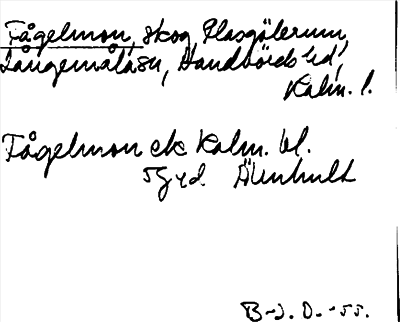 Fågelmon, skog, Plasgölerum,
Långemåla sn, Handbörds hd,
Kalm. l.
Fågelmon ek Kalm. bl.
5G yd Älmhult
B-J. D. -55.